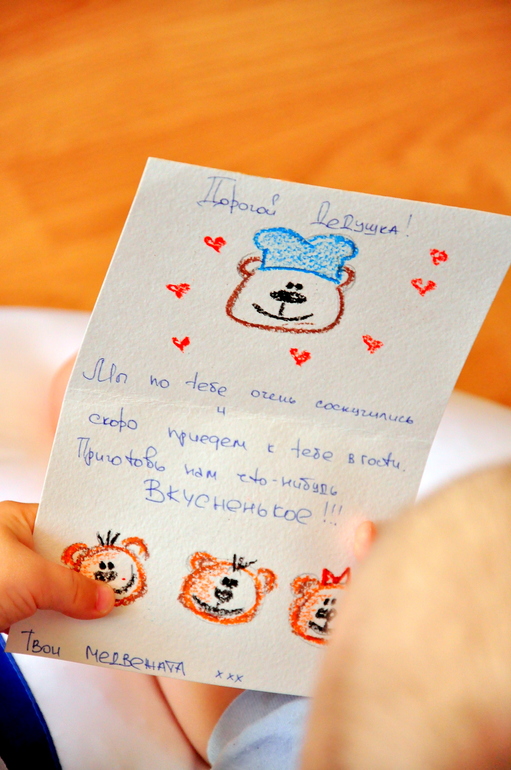 Дорогой Дедушка!
Мы по тебе очень соскучились
и
скоро приедем к тебе в гости.
Приготовь нам что-нибудь
Вкусненькое!!!
Твои медвежата xxx